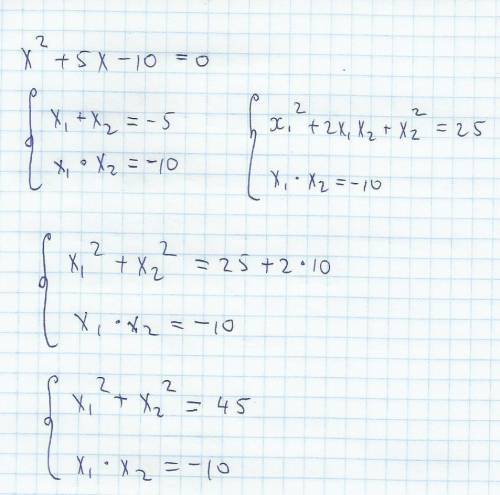 x² + 5x - 10 = 0
{ x₁ + x₂ = -5
x₁ · x₂ = -10
{ x₁² + 2x₁x₂ + x₂² = 25
x₁ · x₂ = -10
{ x₁² + x₂² = 25 + 2 · 10
x₁ · x₂ = -10
{ x₁² + x₂² = 45
x₁ · x₂ = -10